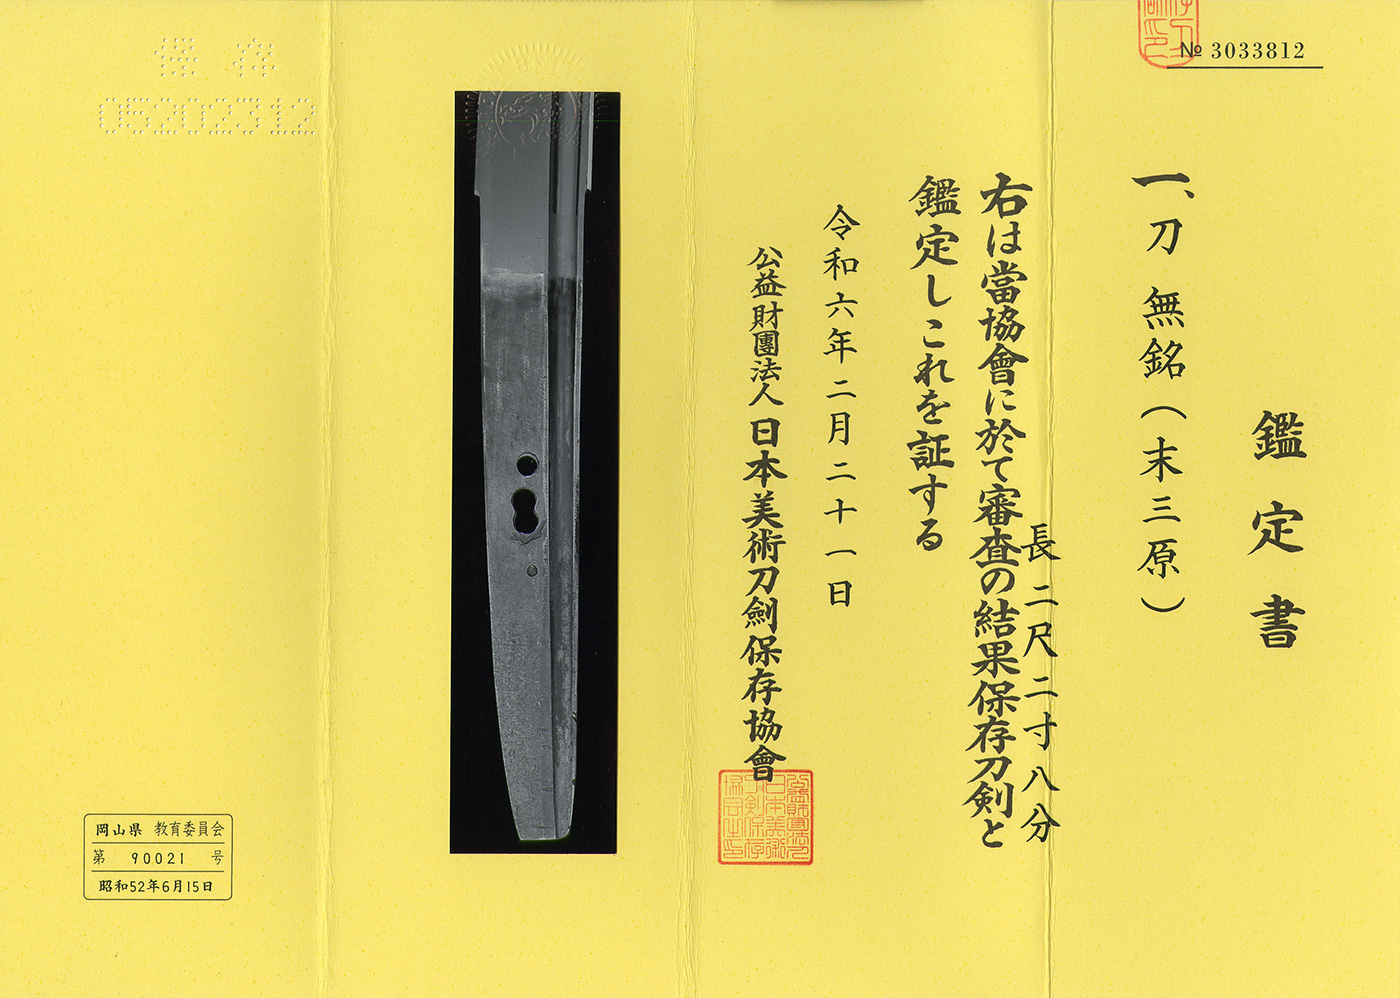 № 3033812
鑑定書
一、刀 無銘(末三原)
長二尺二寸八分
右は當協會に於て審査の結果保存刀剣と
鑑定しこれを証する
令和六年二月二十一日
公益財團法人 日本美術刀劍保存協會
保存
05202312
岡山県 教育委員会
第 90021 号
昭和52年6月15日